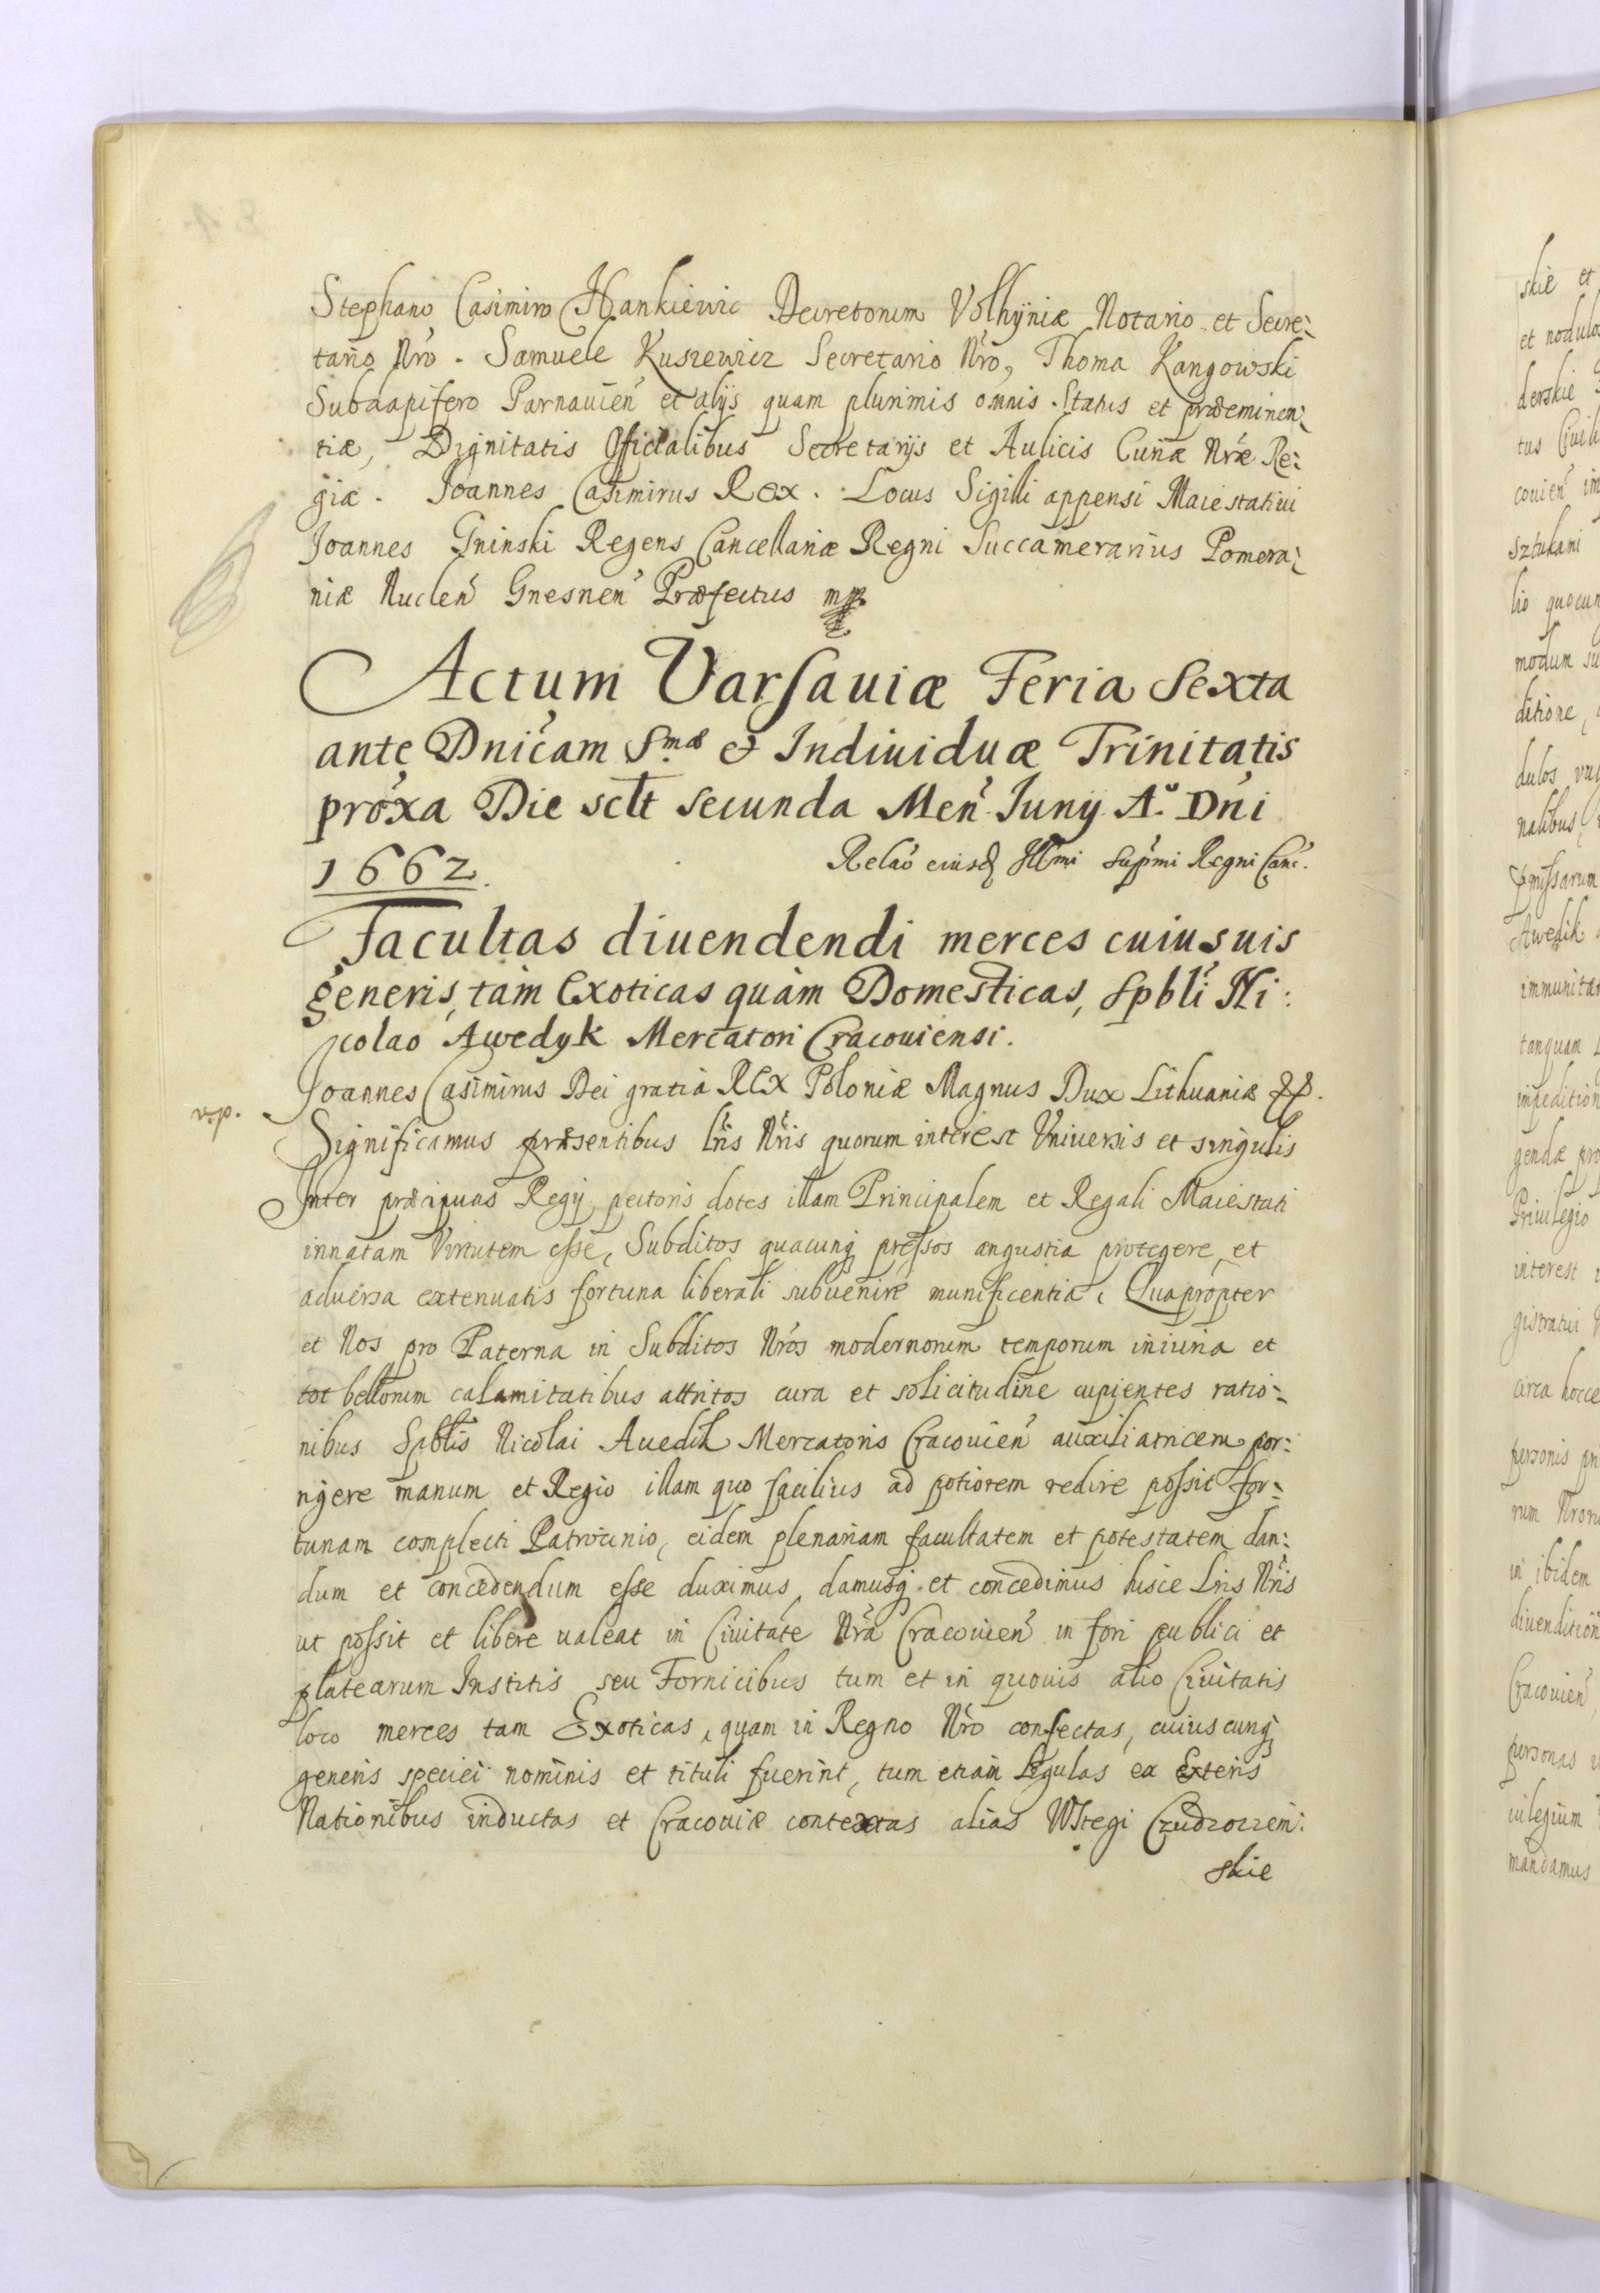 Stephano Casimiro Hankiewic Decretorum Volhyniæ Notario et Secre:
tario Nro. Samuele Kuszewicz Secretario Nro, Thoma Kangowski
Subdapifero Parnauien et alijs quam plurimis omnis Status et præeminen:
tiæ, Dignitatis Officialibus Secretarijs et Aulicis Curiæ Nræ Re:
giæ. Joannes Casimirus Rex. Locus Sigilli appensi Maiestatiui
Joannes Gninski Regens Cancellariæ Regni Succamerarius Pomera:
niæ Naclen Gnesnen Præfectus mp.
Actum Varsauiæ Feria Sexta
ante Dnicam Smæ & Indiuiduæ Trinitatis
proxa Die sclt secunda Men Iunij Ao Dni
1662.
Relao eiusd Illmi supmi Regni Canc.
Facultas diuendendi merces cuiusuis
generis, tàm Exoticas quàm Domesticas, Spbli Ni:
colao Awedyk Mercatori Cracouiensi.
Joannes Casimirus Dei gratia Rex Poloniæ Magnus Dux Lithuaniæ &&.
v.p.
Significamus præsentibus Lris Nris quorum interest Vniuersis et singulis
Inter præcipuas Regij pectoris dotes illam Principalem et Regali Maiestati
innatam Virtutem esse, Subditos quacunq pressos angustia protegere, et
aduersa extenuatis fortuna liberali subuenire munificentia, Quapropter
et Nos pro Paterna in Subditos Nros modernorum temporum iniuria et
tot bellorum calamitatibus attritos cura et solicitudine cupientes ratio:
nibus Spblis Nicolai Auedik Mercatoris Cracouien auxiliatricem por:
rigere manum et Regio illam quo facilius ad potiorem redire possit for:
tunam complecti Patrocinio, eidem plenariam facultatem et potestatem dan:
dum et concedendum esse duximus, damusq et concedimus hisce Lris Nris
ut possit et libere ualeat in Ciuitate Nra Cracouien in fori publici et
platearum Institis seu Fornicibus tum et in quouis alio Ciuitatis
loco merces tam Exoticas, quam in Regno Nro confectas, cuiuscunq
generis speciei nominis et tituli fuerint, tum etiam Ligulas ex Exteris
Nationibus inductas et Cracouiæ contextas alias Wstegi Cudzozzem:
skie
skie et
et nodulo
derskie
tus Ciuili
couien im
sztukami
lio quocun
modum su
ditione,
dulos
nalibus
pmissarum
Awedik
immunitat
tanquam
impedition
gendæ pro
Priuilegio
interest
gistratui
circa hocce
personis pr
rum Nroru
in ibidem
diuendition
Cracouien
personas
uilegium
mandamus